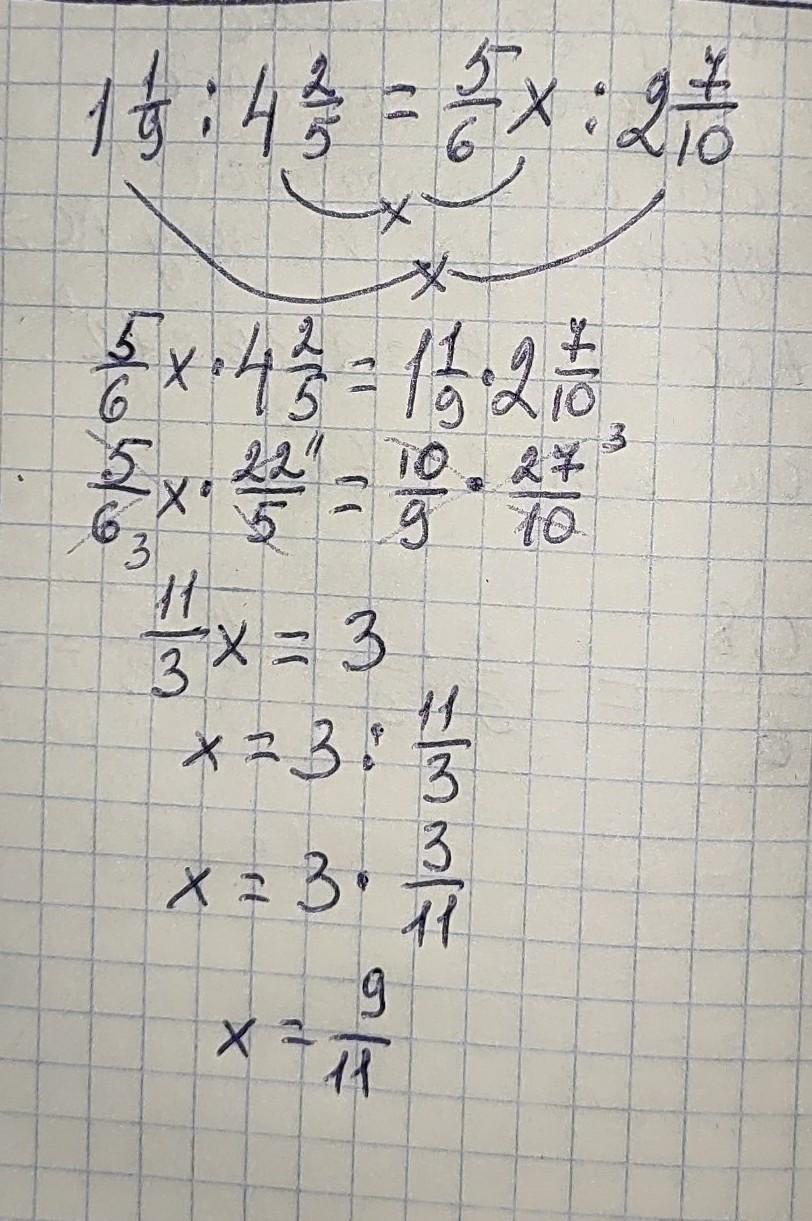 1 1/9 : 4 2/5 = 5/6 x : 2 7/10
x
x
5/6 x · 4 2/5 = 1 1/9 · 2 7/10
5/6 3 x · 22 11/5 = 10/9 · 27 3/10
11/3 x = 3
x = 3 : 11/3
x = 3 · 3/11
x = 9/11